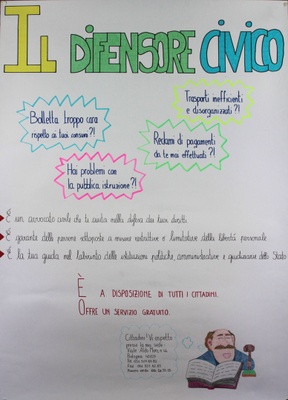 IL DIFENSORE CIVICO
Trasporti inefficienti
e disorganizzati?!
Bolletta troppo cara
rispetto ai tuoi consumi?!
Reclami di pagamenti
da te mai effettuati?!
Hai problemi con
la pubblica istruzione?!
È un avvocato civile che ti aiuta nella difesa dei tuoi diritti.
È garante delle persone sottoposte a misure restrittive o limitative della libertà personale.
È la tua guida nel labirinto delle istituzioni politiche, amministrative e giudiziarie dello Stato
È A DISPOSIZIONE DI TUTTI I CITTADINI.
OFFRE UN SERVIZIO GRATUITO.
Cittadino! Vi aspetta
presso la sua sede:
Viale Aldo Moro,
Bologna